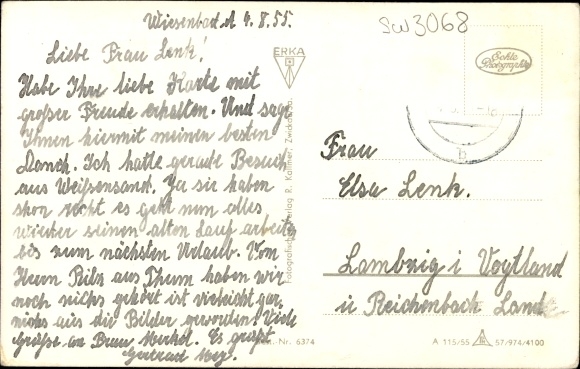 Wiesenbad d 4.8.55.
SW3068
Liebe Frau Lenk!
Habe Ihre liebe Karte mit
großer Freude erhalten. Und sage
Ihnen hiermit meinen besten
Danck. Ich hatte gerade Besuch
aus Weißensand. Ja sie haben
schon recht es geht nun alles
wieder seinen alten Lauf arbeiten
bis zum nächsten Urlaub. Vom
Herrn aus Thum haben wir
noch nichts gehört ist vieleicht gar
nichts aus die Bilder geworden. Viele
Grüße an Frau Merkel. Es grüßt
Gertrud
ERKA
Fotografischer Verlag R. Kallmer, Zwickau
Best.-Nr. 6374
Echte
Photographie
b
Frau
Elsa Lenk.
Lambzig i Vogtland
ü Reichenbach Land
A 115/55 57/974/4100